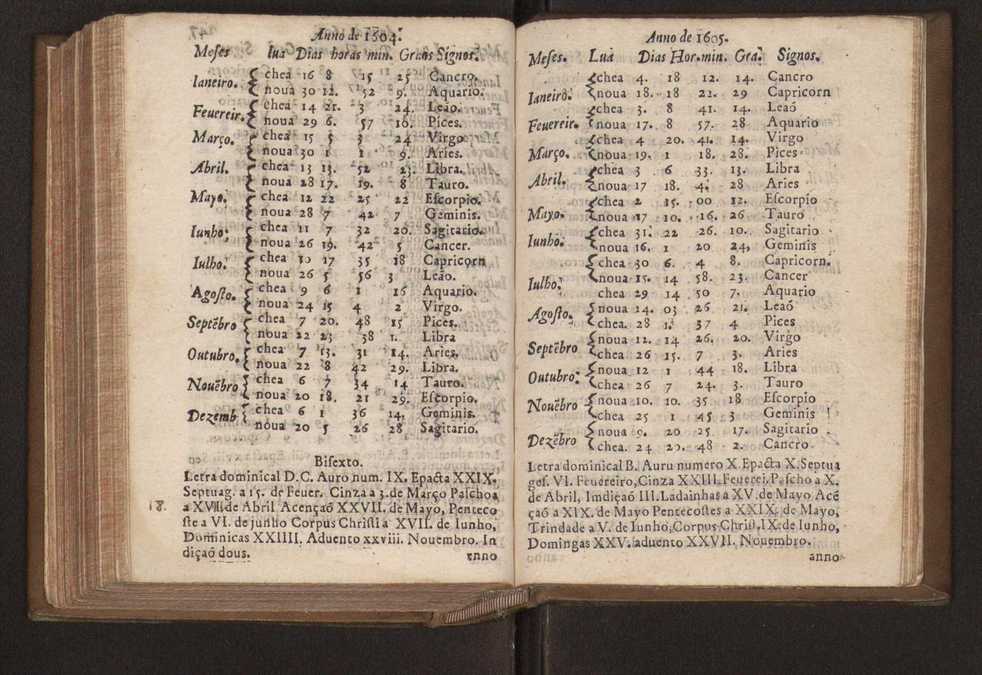 Anno de 1604.
Meses lua Dias horas min. Graos Signos.
Ianeiro. chea 16 8 15 25 Cancro.
noua 30 12. 52 9. Aquario.
Feuereir. chea 14 21. 3 24. Leaõ.
noua 29 6. 57 10. Pices.
Março. chea 15 5 3 24 Virgo
noua 30 1 1 9. Aries.
Abril. chea 13 13. 52 23. Libra.
noua 28 17. 19. 8 Tauro.
Mayo. chea 12 22 25 22 Escorpio
noua 28 7 42 7 Geminis.
Iunho: chea 11 7 32 20. Sagitario.
noua 26 19. 42 5 Cancer.
Iulho: chea 10 17 35 18 Capricorn
noua 26 5 56 3 Leão.
Agosto. chea 9 6 1 16 Aquario.
noua 24 15 4 2 Virgo.
Septẽbro chea 7 20. 48 15 Pices.
noua 22 23 38 1. Libra
Outubro. chea 7 13. 31 14. Aries.
noua 22 8 42 29. Libra.
Nouẽbro chea 6 7 34 14 Tauro.
noua 20 18. 21 29. Escorpio.
Dezemb chea 6 1 36 14, Geminis.
noua 20 5 26 28 Sagitario.
Bisexto.
Letra dominical D.C. Auro num. IX. Epacta XXIX.
Septuag. a 15. de Feuer. Cinza a 3. de Março Paschoa
18. a XVIII de Abril Acençaõ XXVII. de Mayo, Penteco
ste a VI. de junho Corpus Christi a XVII. de Iunho,
Dominicas XXIIII. Aduento xxviii. Nouembro. In
diçaõ dous.
anno
Anno de 1605.
Meses. Luà Dias Hor. min. Gra. Signos.
Ianeiro. chea 4. 18 12. 14. Cancro
noua 18. 18 22. 29 Capricorn
Feuereir. chea 3. 8 41. 14. Leaõ
noua 17. 8 57. 28 Aquario
Março. chea 4 20. 41. 14. Virgo
noua 19. 1 18. 28. Pices
Abril. chea 3 6 33. 13. Libra
noua 17 18. 4. 28 Aries
Mayo. chea 2 15. 00 12. Escorpio
noua 17 10. 16. 26 Tauro
Iunho. chea 31. 22 26. 10. Sagitario
noua 16. 1 20 24, Geminis
chea 30 6. 4 8. Capricorn.
Iulho, noua 15. 14 58. 23. Cancer
chea 29 14 50 7. Aquario
Agosto. noua 14. 03 26 21. Leaõ
chea. 28 1. 37 4 Pices
Septẽbro noua 12. 14 26. 20. Virgo
chea 26 15. 7 3. Aries
Outubro: noua 12 1 44 18. Libra
chea 26 7 24. 3. Tauro
Nouẽbro noua 10. 10. 35 18 Escorpio
chea 25 1 45 3 Geminis
Dezẽbro noua 9. 20 25 17. Sagitario
chea. 24 20. 48 2. Cancro
Letra dominical B. Auru numero X. Epacta X. Septua
ges. VI. Feuereiro, Cinza XXIII. Feuerei. Pascho a X.
de Abril, Imdiçaõ III. Ladainhas a XV. de Mayo Acẽ
çaõ a XIX. de Mayo Pentecostes a XXIX. de Mayo,
Trindade a V. de Iunho, Corpus Christ. IX. de Iunho,
Domingas XXV. aduento XXVII. Nouembro.
anno